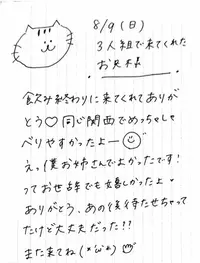 8/9(日)
3人組で来てくれた
お兄様
飲み終わりに来てくれてありが
とう♡同じ関西でめっちゃしゃ
べりやすかったよー
えっ僕お姉さんでよかったです!
ってお世辞でも嬉しかったよ。
ありがとう、あの後待たせちゃって
たけど大丈夫だった!?
また来てね(*'ω'*)